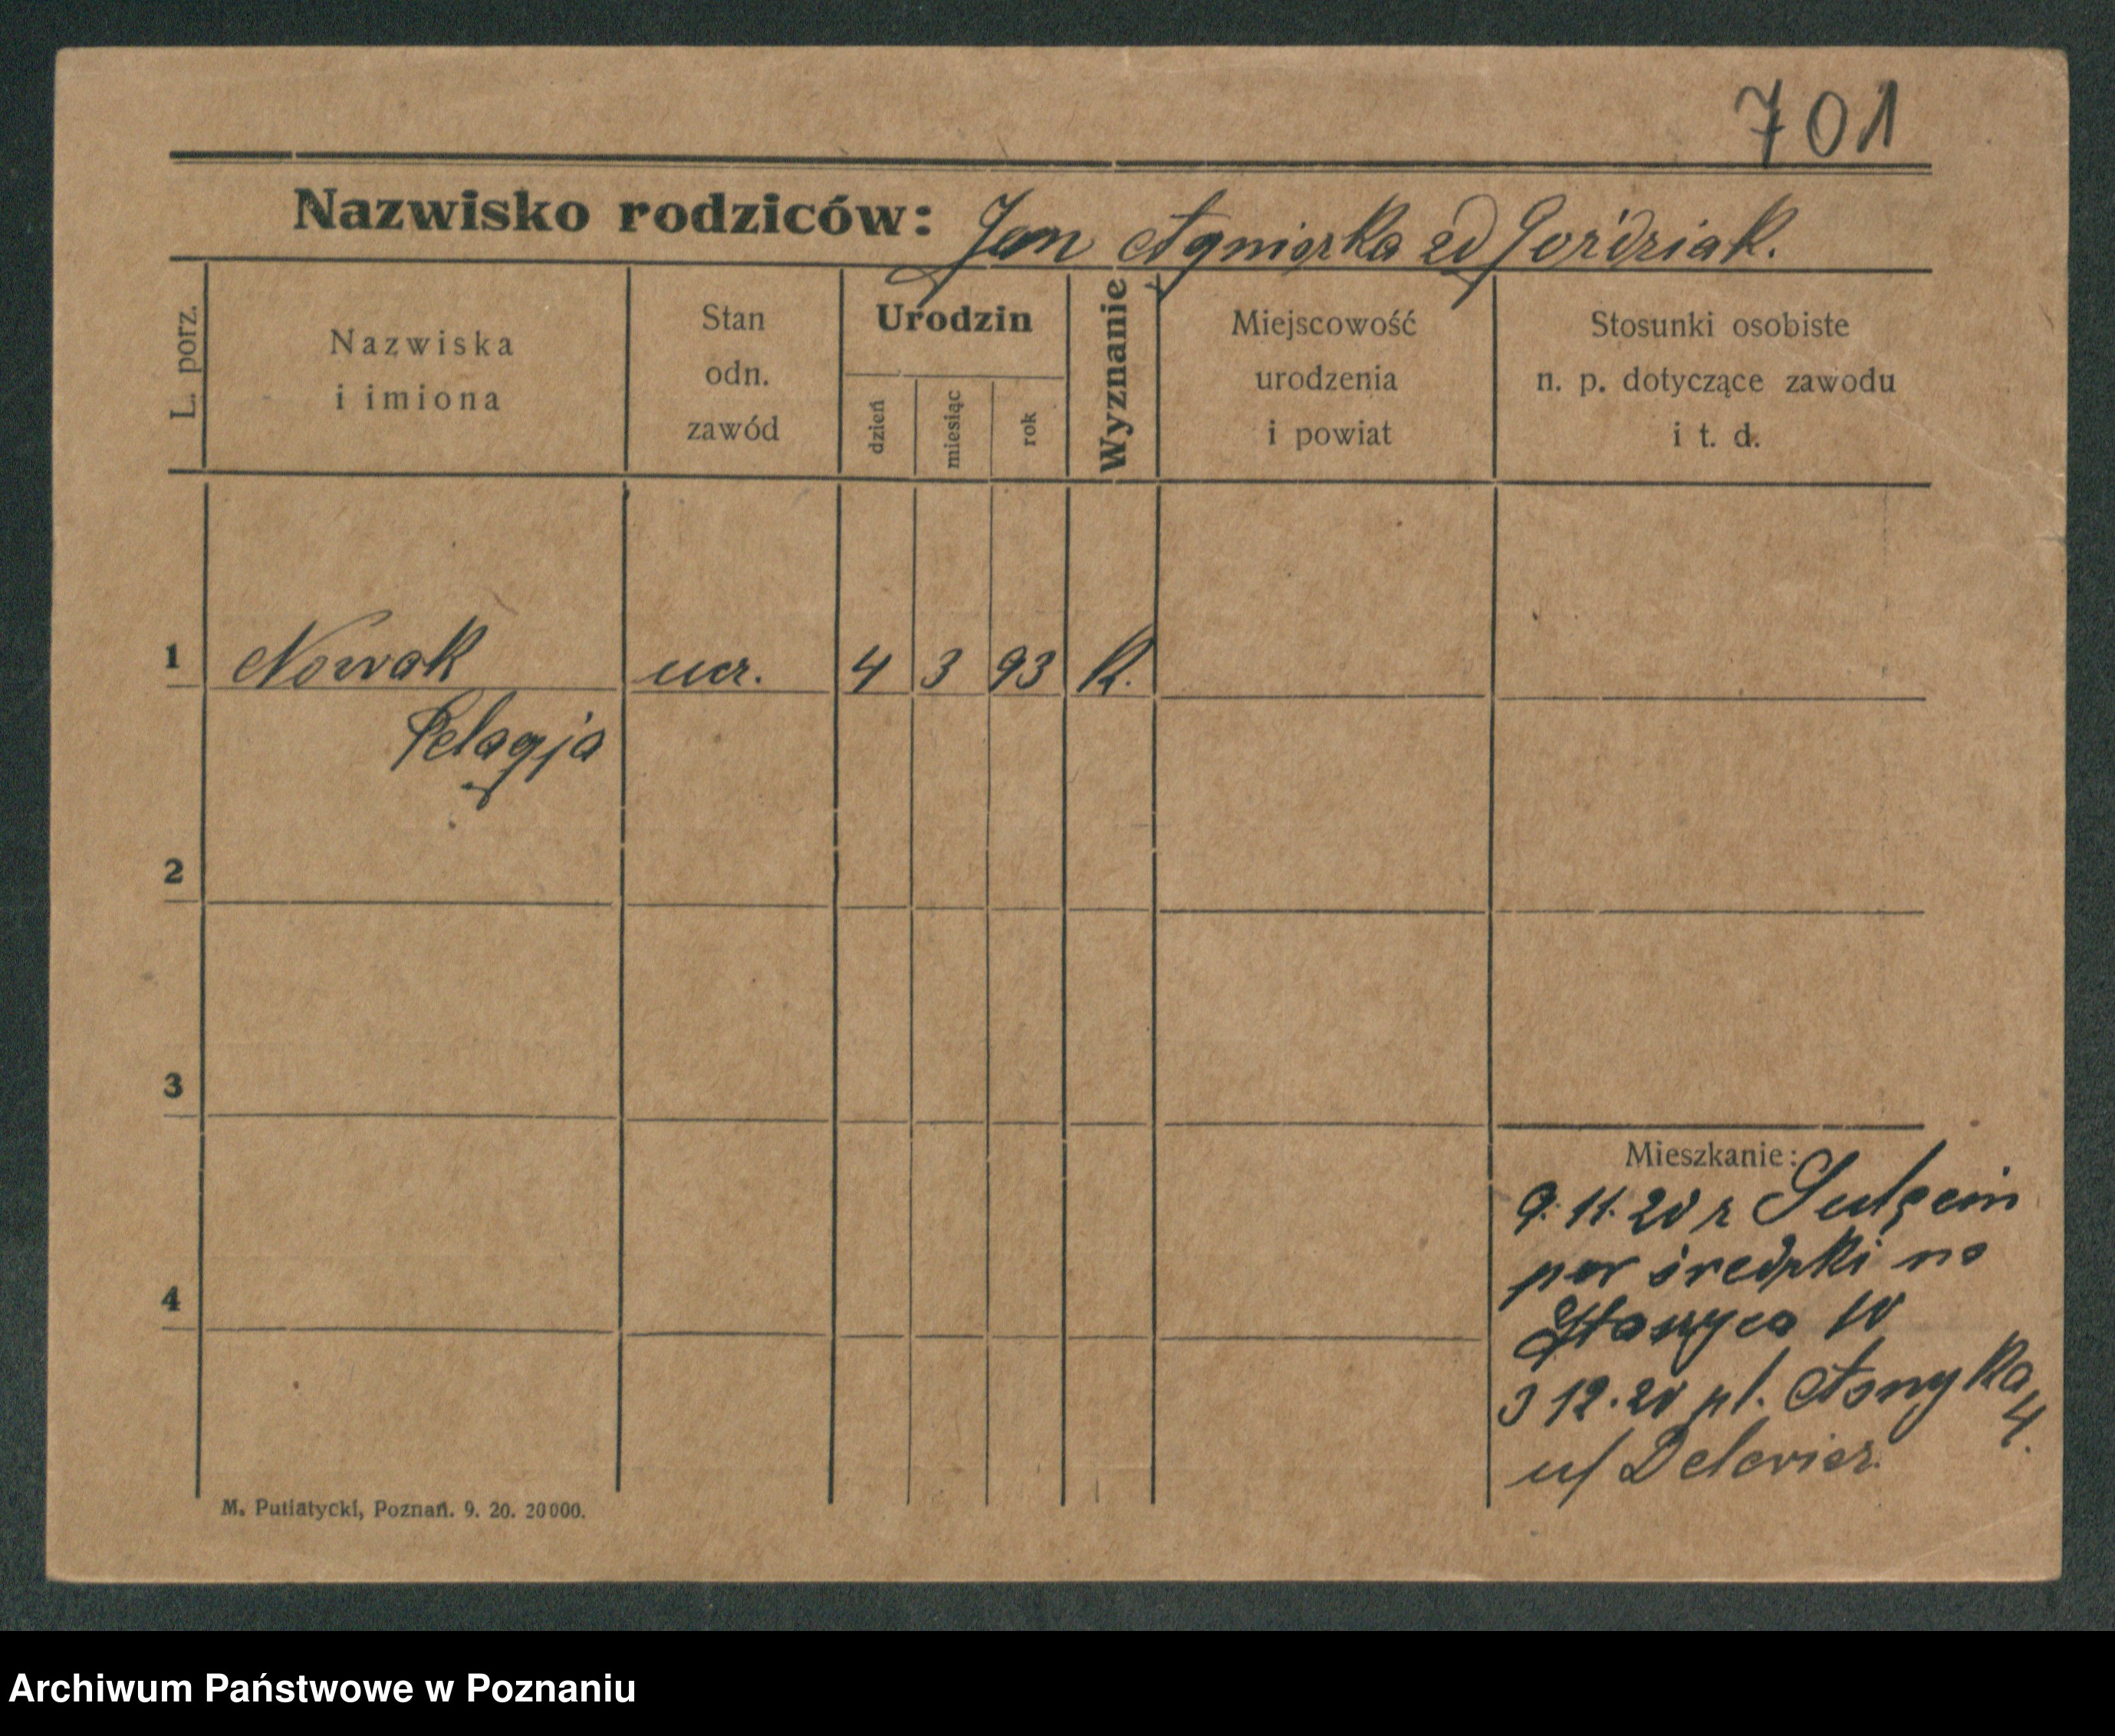 701
Nazwisko rodziców: Jan Agnieszka zd Joździak.
L. porz.
Nazwiska
i imiona
Stan
odn.
zawód
Urodzin
dzień
miesiąc
rok
Wyznanie
Miejscowość
urodzenia
i powiat
Stosunki osobiste
n. p. dotyczące zawodu
i t. d.
1 Nowak ucz. 4 3 93 K.
Pelagja
2
3
4
Mieszkanie:
9. 11. 20 r
pow średzki na
10
3 12. 20 pl. Asnyka 4.
u/
M. Putiatycki, Poznań. 9. 20. 20000.
Archiwum Państwowe w Poznaniu